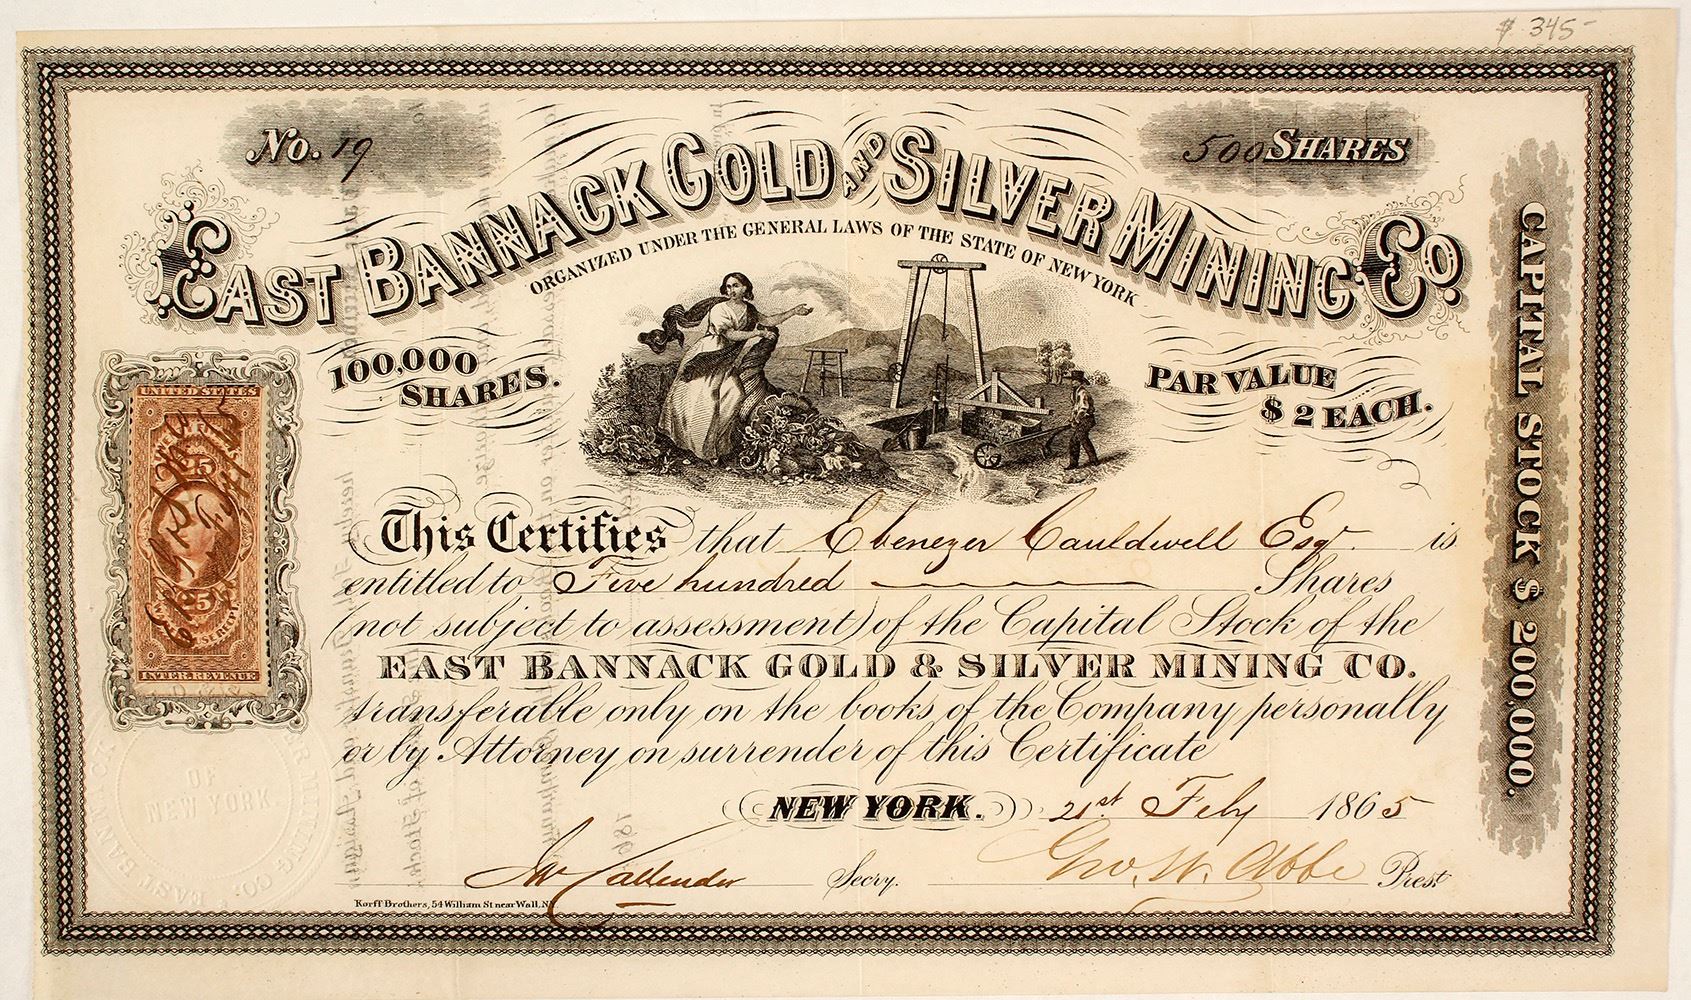 $ 345-
No. 19
500 SHARES
EAST BANNACK GOLD AND SILVER MINING CO.
ORGANIZED UNDER THE GENERAL LAWS OF THE STATE OF NEW YORK
100,000
SHARES.
PAR VALUE
$ 2 EACH.
CAPITAL STOCK $ 200,000.
UNITED STATES
25
25
INTER. REVENUE
This Certifies that Ebenezer Cauldwell Esqr. is
entitled to Five hundred Shares
(not subject to assessment) of the Capital Stock of the
EAST BANNACK GOLD & SILVER MINING CO.
transferable only on the books of the Company personally
or by Attorney on surrender of this Certificate
NEW YORK. 21st Feby 1865
Callender Secry. Geo. W. Abbe Prest
Korff Brothers, 54 William St near Wall, N.Y.
NEW YORK
MINING CO.
EAST BANNACK